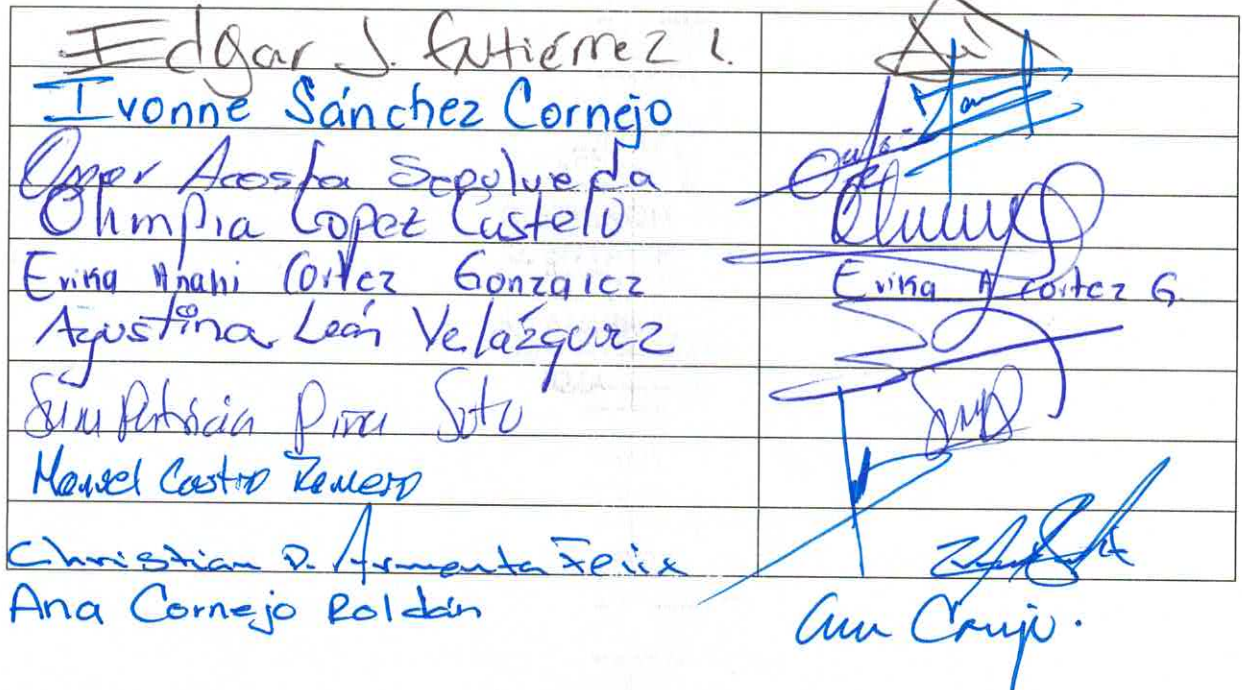 Edgar J. Gutiérrez L.
Ivonne Sánchez Cornejo
Omar Acosta Sepulveda
Olimpia Lopez Castelo
Erika Anahi Cortez Gonzalez Erika A Cortez G.
Agustina León Velázquez
Patricia Pina Soto
Manuel Castro Romero
Christian D. Armenta Felix
Ana Cornejo Roldán Ana Cornejo.